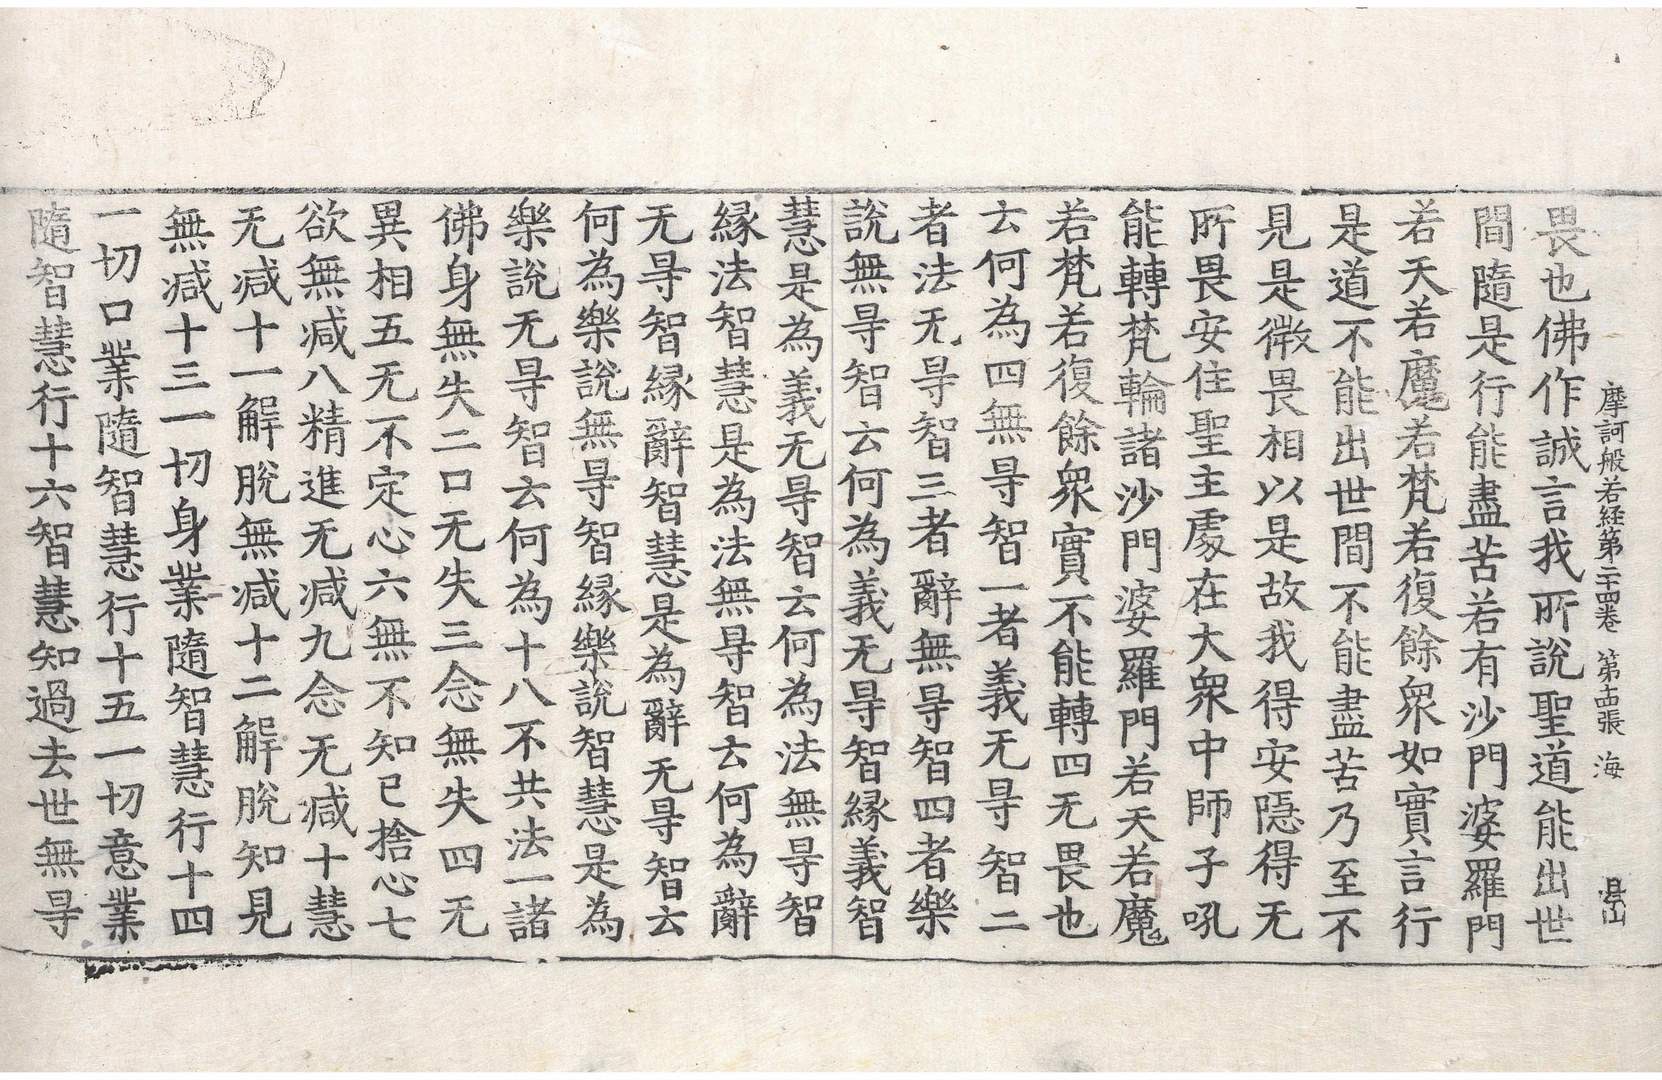 摩訶般若経第二十四卷 第 張 海
畏也佛作誠言我所說聖道能出世
間隨是行能盡苦若有沙門婆羅門
若天若魔若梵若復餘衆如實言行
是道不能出世間不能盡苦乃至不
見是微畏相以是故我得安隱得无
所畏安住聖主處在大衆中師子吼
能轉梵輪諸沙門婆羅門若天若魔
若梵若復餘衆實不能轉四无畏也
云何為四無㝵智一者義无㝵智二
者法无㝵智三者辭無㝵智四者樂
說無㝵智云何為義无㝵智縁義智
慧是為義无㝵智云何為法無㝵智
縁法智慧是為法無㝵智云何為辭
无㝵智縁辭智慧是為辭无㝵智云
何為樂說無㝵智縁樂說智慧是為
樂說无㝵智云何為十八不共法一諸
佛身無失二口无失三念無失四无
異相五无不定心六無不知已捨心七
欲無减八精進无减九念无减十慧
无减十一解脫無减十二解脫知見
無减十三一切身業隨智慧行十四
一切口業隨智慧行十五一切意業
隨智慧行十六智慧知過去世無㝵